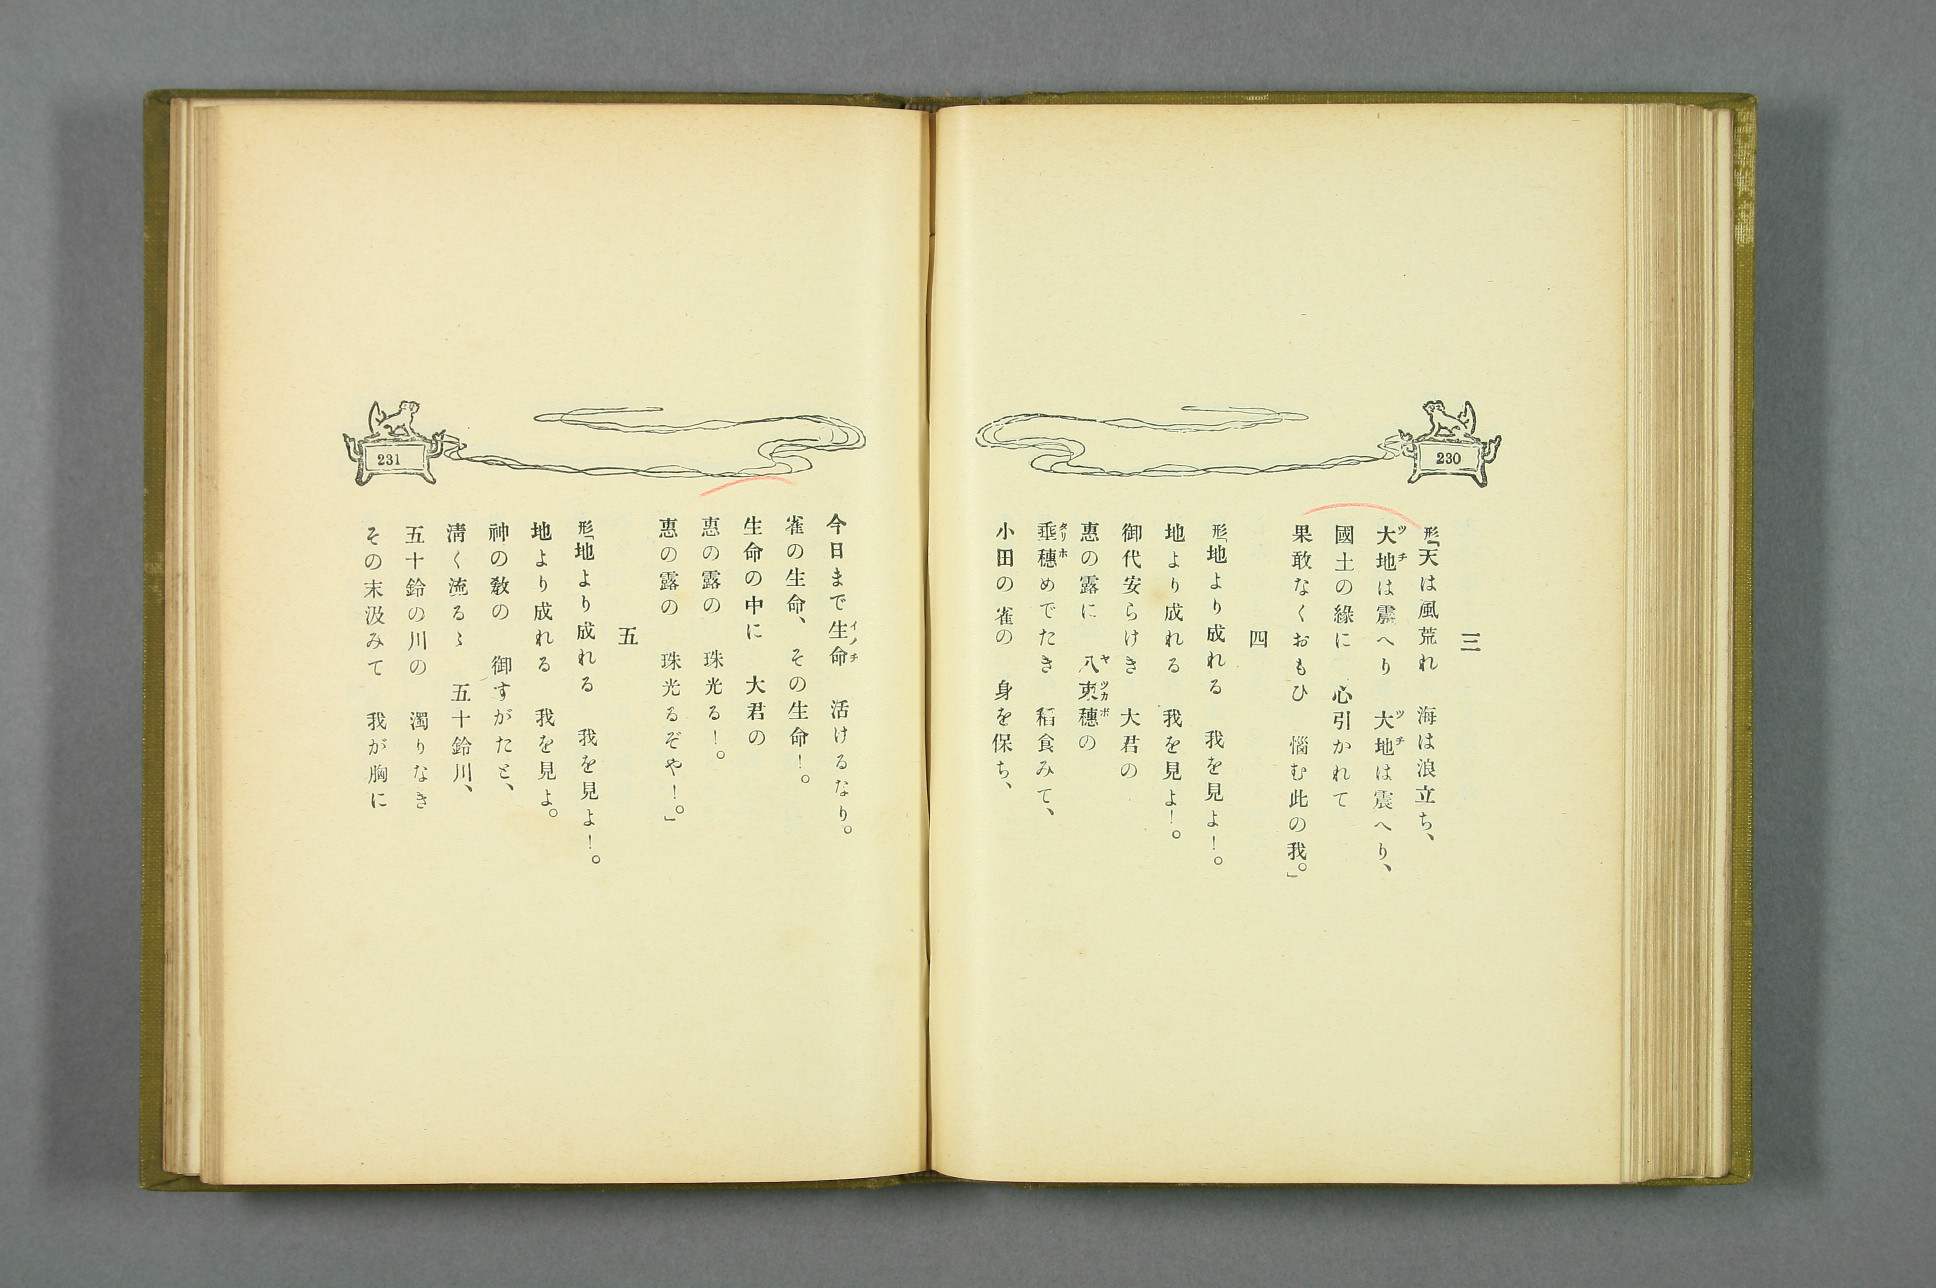 230
三
形「天は風荒れ　海は浪立ち、
大地は震へり　大地は震へり、
國土の緣に　心引かれて
果敢なくおもひ　惱む此の我。」
四
形「地より成れる　我を見よ！。
地より成れる　我を見よ！。
御代安らけき　大君の
惠の露に　八束穗の
垂穗めでたき　稻食みて、
小田の雀の　身を保ち、
231
今日まで生命　活けるなり。
雀の生命、その生命！。
生命の中に　大君の
惠の露の　珠光る！。
惠の露の　珠光るぞや！。」
五
形「地より成れる　我を見よ！。
地より成れる　我を見よ。
神の敎の　御すがたと、
淸く流るゝ　五十鈴川、
五十鈴の川の　濁りなき
その末汲みて　我が胸に